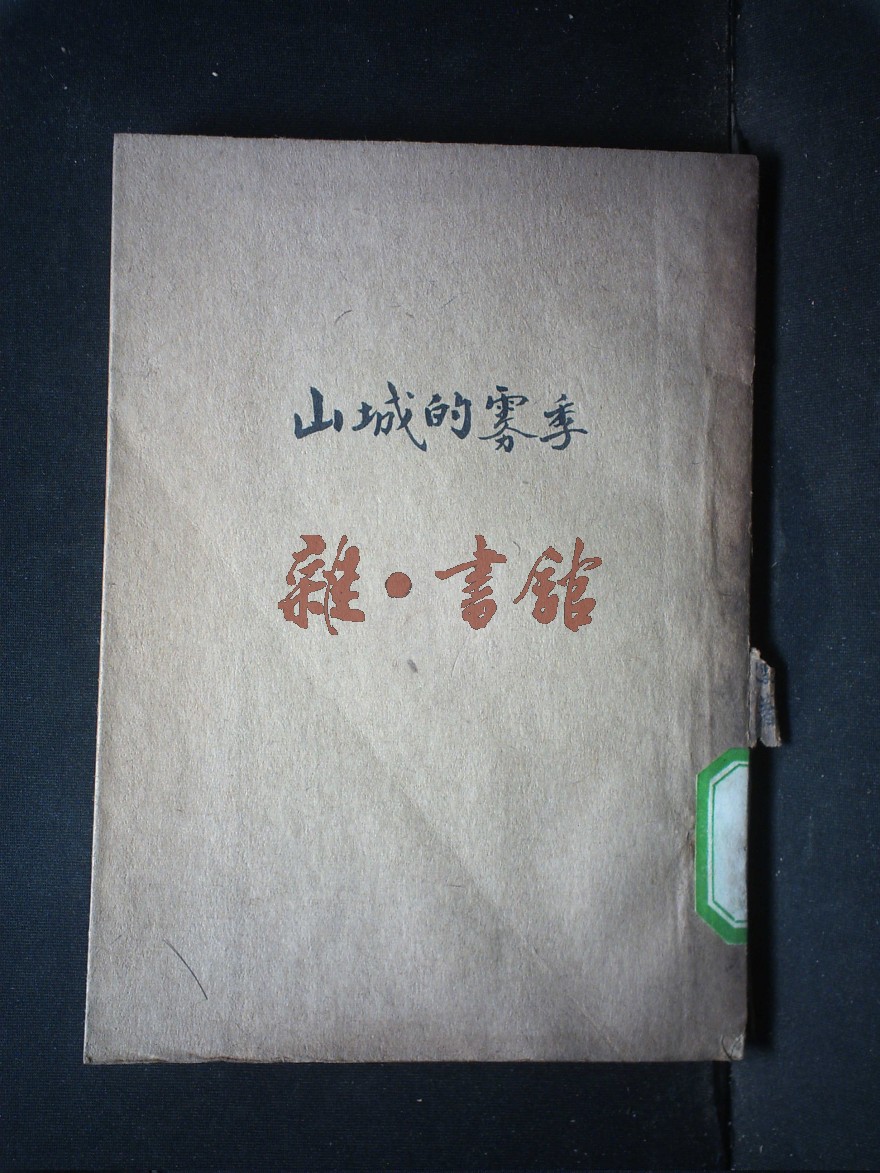 山城的雾季
雜·書館